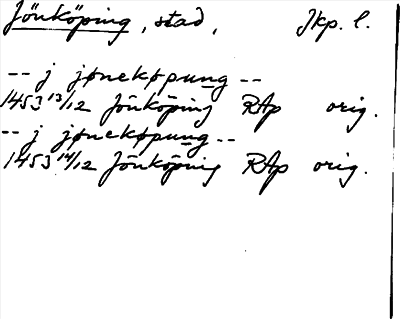 Jönköping, stad, Jkp. l.
-- j jønekøpung --
1453 13/12 Jönköping RAp orig.
-- j jønekøpung --
1453 14/12 Jönköping RAp orig.